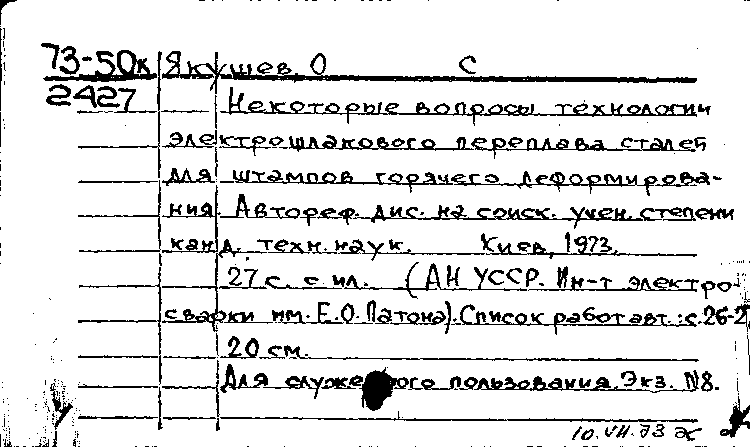 73-50к Якушев, О С
2427 Некоторые вопросы технологии
электрошлакового переплава сталей
для штампов горячего деформирова-
ния. Автореф. дис. на соиск. учен. степени
канд. техн. наук. Киев, 1973.
27 с. с ил. (АН УССР. Ин-т электро-
сварки им. Е.О. Патона). Список работ авт.: с. 26-2
20 см.
Для служебного пользования. Экз. №8.
10.VII.73